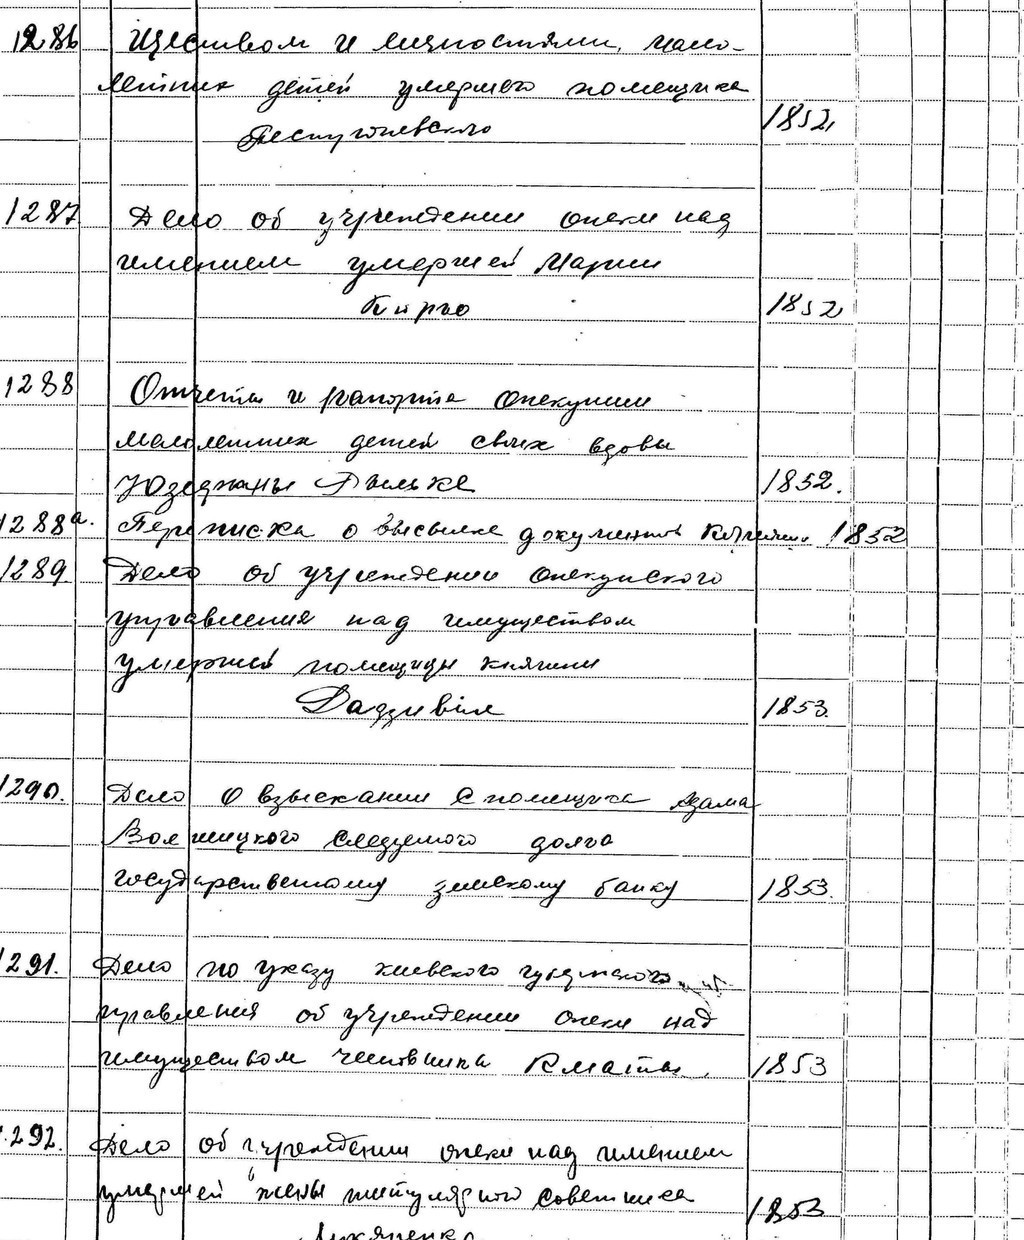 1286 ществом и личностями, мало-
летних детей умершего помещика
1852
1287 Дело об учреждении опеки над
имением умершей Марии
1852
1288 Отчеты и рапорта опекунши
малолетних детей своих вдовы
1852.
1288а. Переписка о высылке документов 1852
1289 Дело об учреждении опекунского
управления над имуществом
умершей помещицы княгини
1853.
1290. Дело о взыскании с помещика Адама
следуемого долга
государственному земскому банку 1853.
1291. Дело по указу киевского губернского
правления об учреждении опеки над
имуществом чиновника 1853
1292. Дело об учреждении опеки над имением
умершей жены титулярного советника 1853
Лукяненко